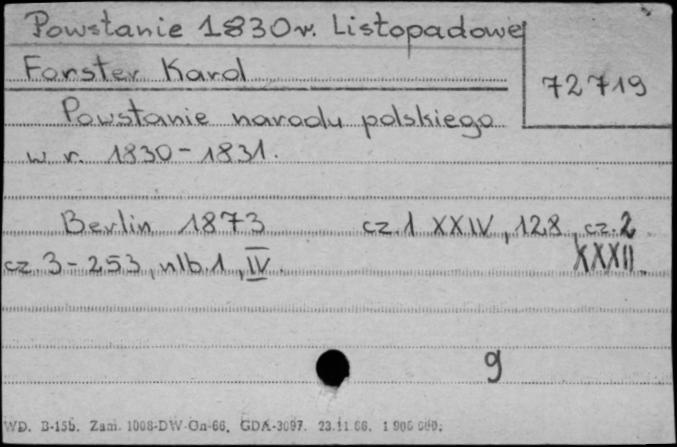 Powstanie 1830 r. Listopadowe
Forster Karol
72719
Powstanie narodu polskiego
w r. 1830-1831.
Berlin 1873 cz. 1 XXIV, 128, cz. 2
cz. 3-253, nlb. 1, IV. XXXII.
9
WD. B-15b. Zam. 1008-DW-On-66. GDA-3097. 23.11.66.